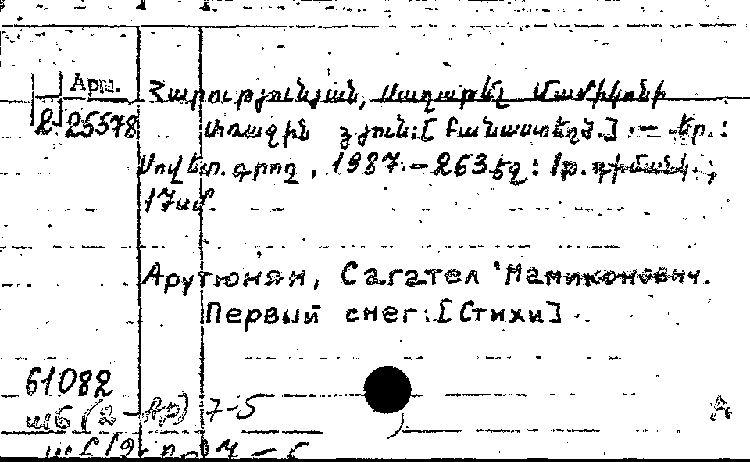 Арш.
2 25578
Հարությունյան, Սաղաթել Մամիկոնի
Առաջին ձյուն: [Բանաստեղծ.] .— Եր.:
Սովետ. գրող, 1987.— 263 էջ: 1 թ. դիմանկ.;
17 սմ.
Арутюнян, Сагател Мамиконович.
Первый снег: [Стихи].
61082
ш6 (2-Ар) 7-5
А